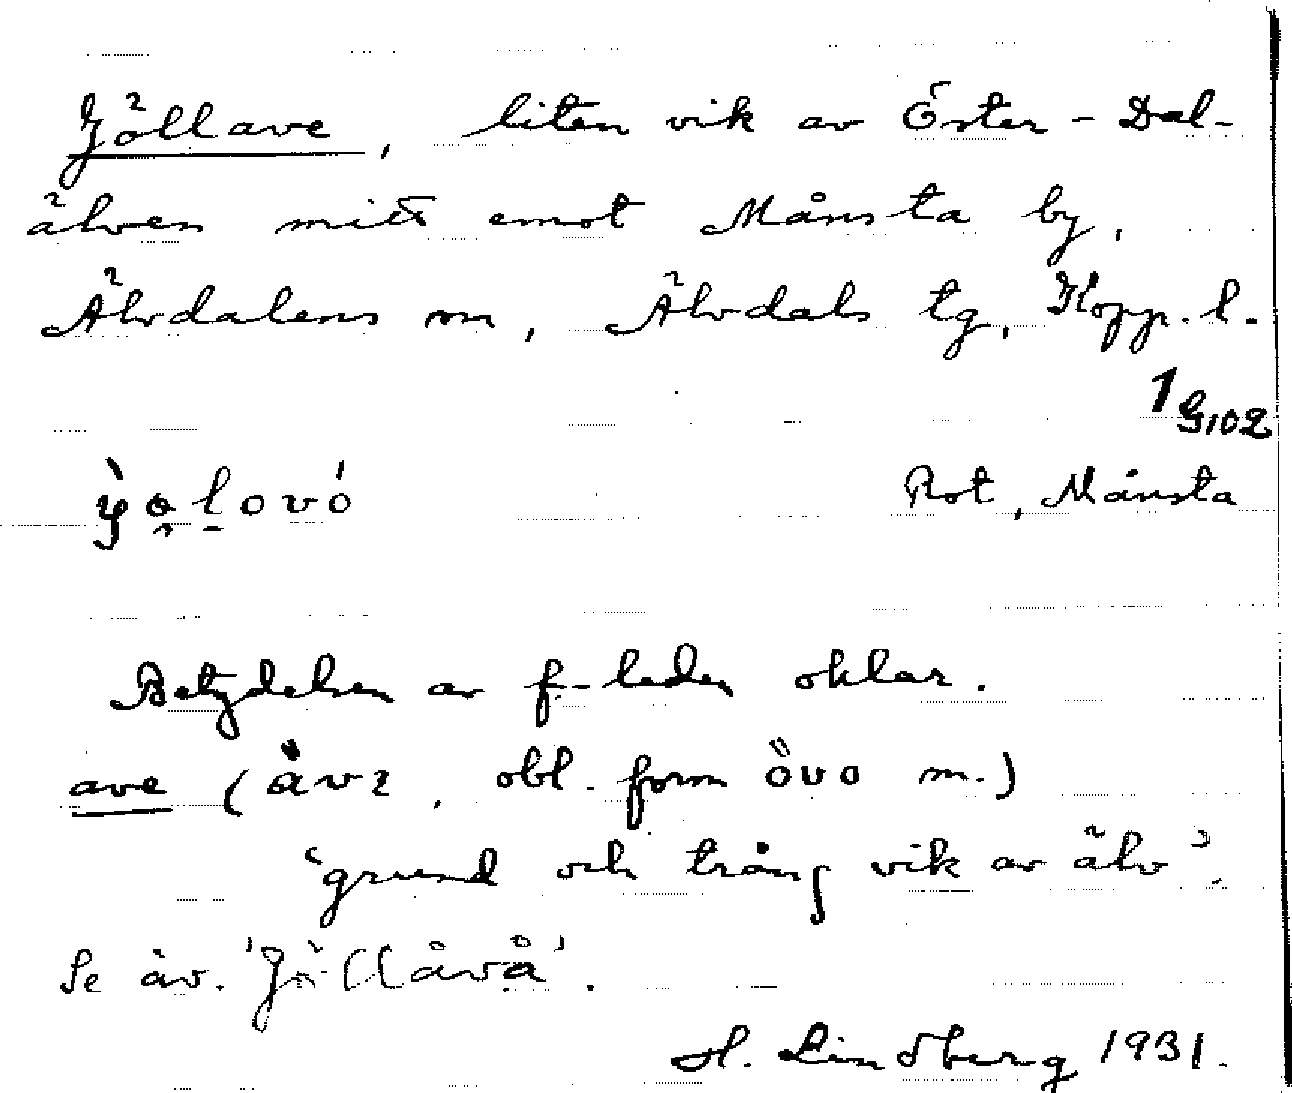 Jöllave, liten vik av Öster-Dal-
älven mitt emot Månsta by,
Älvdalens sn, Älvdals tg, Kopp. l.
1 G102
Rot, Månsta
Betydelsen av f-leden oklar.
ave (, obl. form òvo m.)
'grund och trång vik av älv'.
Se äv. 'Jöllåvå'.
H. Lindberg 1931.